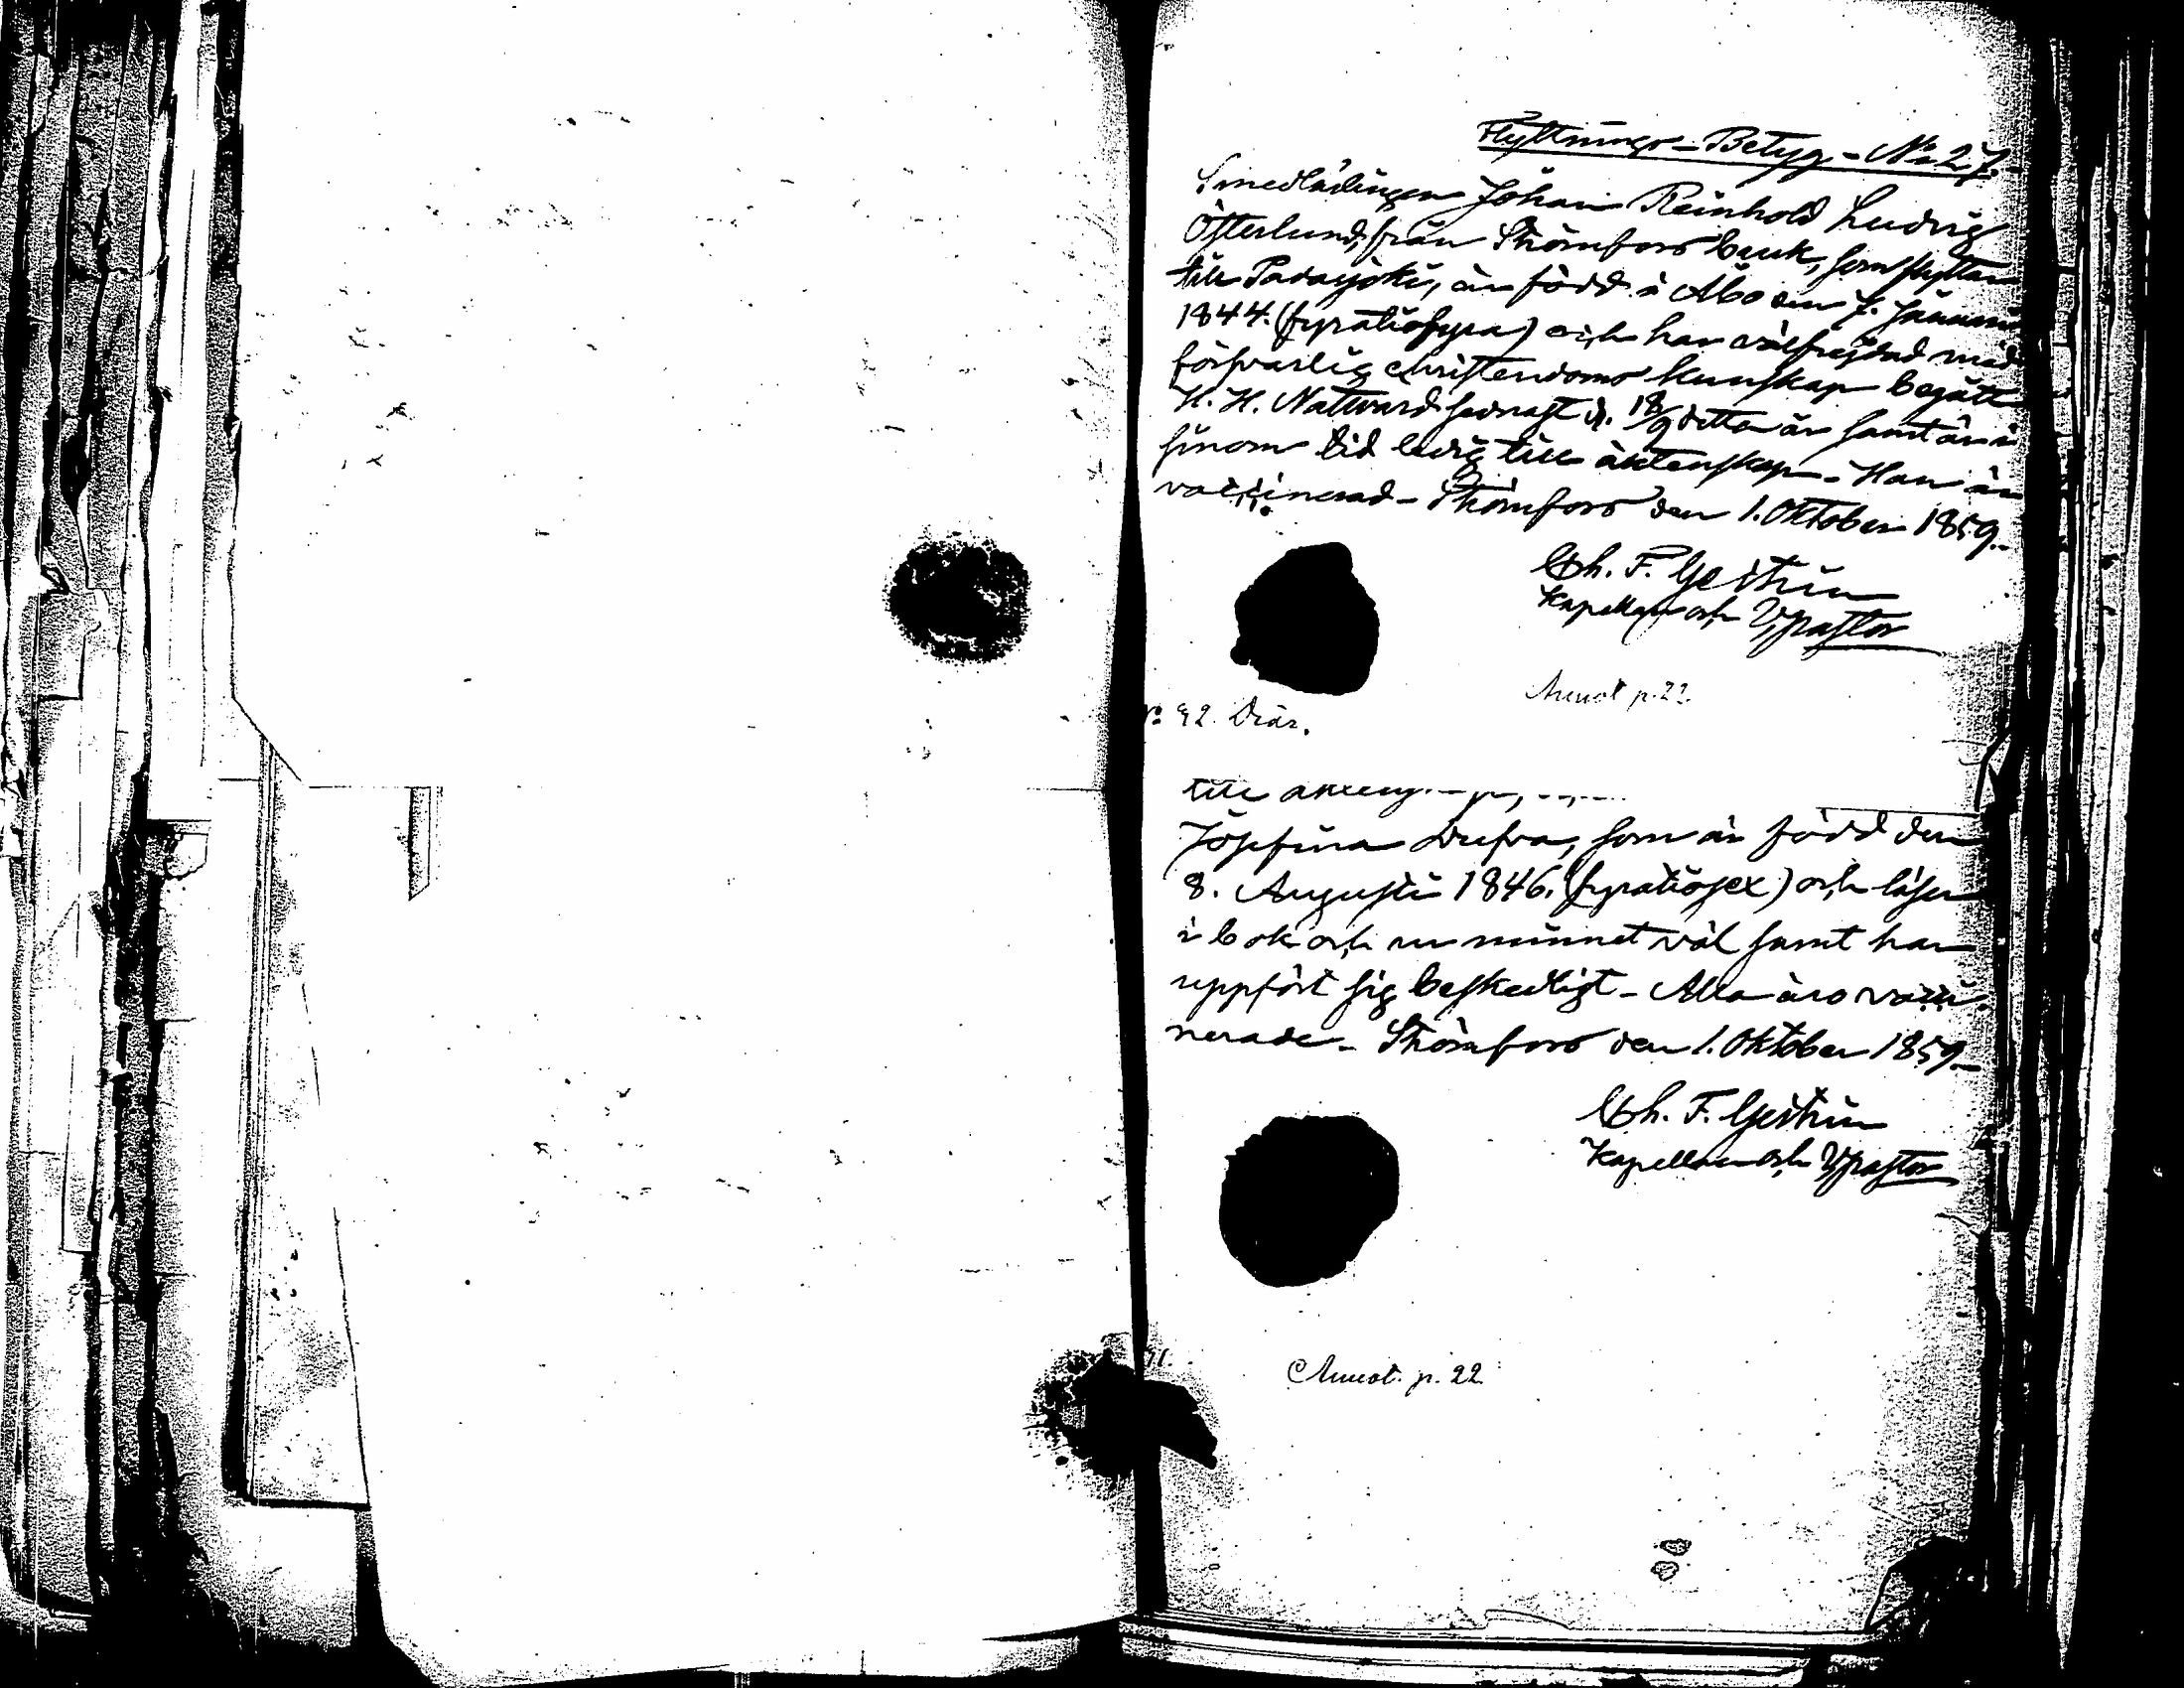 Flyttnings-Betyg - No 27.
Smedlärlingen Johan Reinhold Ludvig
Österlund, från Strömfors bruk, som flyttar
till Padasjoki, är född i Åbo den 7. Januari
1844. (fyratiofyra) och har välfrejdad med
försvarlig christendoms kunskap begått
H. H. Nattvard sednast d. 18/9 detta år samt är i
sinom tid ledig till äktenskap. - Han är
vaccinerad - Strömfors den 1. Oktober 1859.
Ch. F. Geitrin
Kapellan och V, pastor
Annot p. 22.
No 92. Diar.
till
Josefina Dufva, som är född den
8. Augusti 1846. (fyratiosex) och läser
i bok och ur minnet väl samt har
uppfört sig beskedligt - Alla äro vacci
nerade - Strömfors den 1. Oktober 1859 -
Ch. F. Geitrin
Kapellan och V, pastor
91.
Annot. p. 22